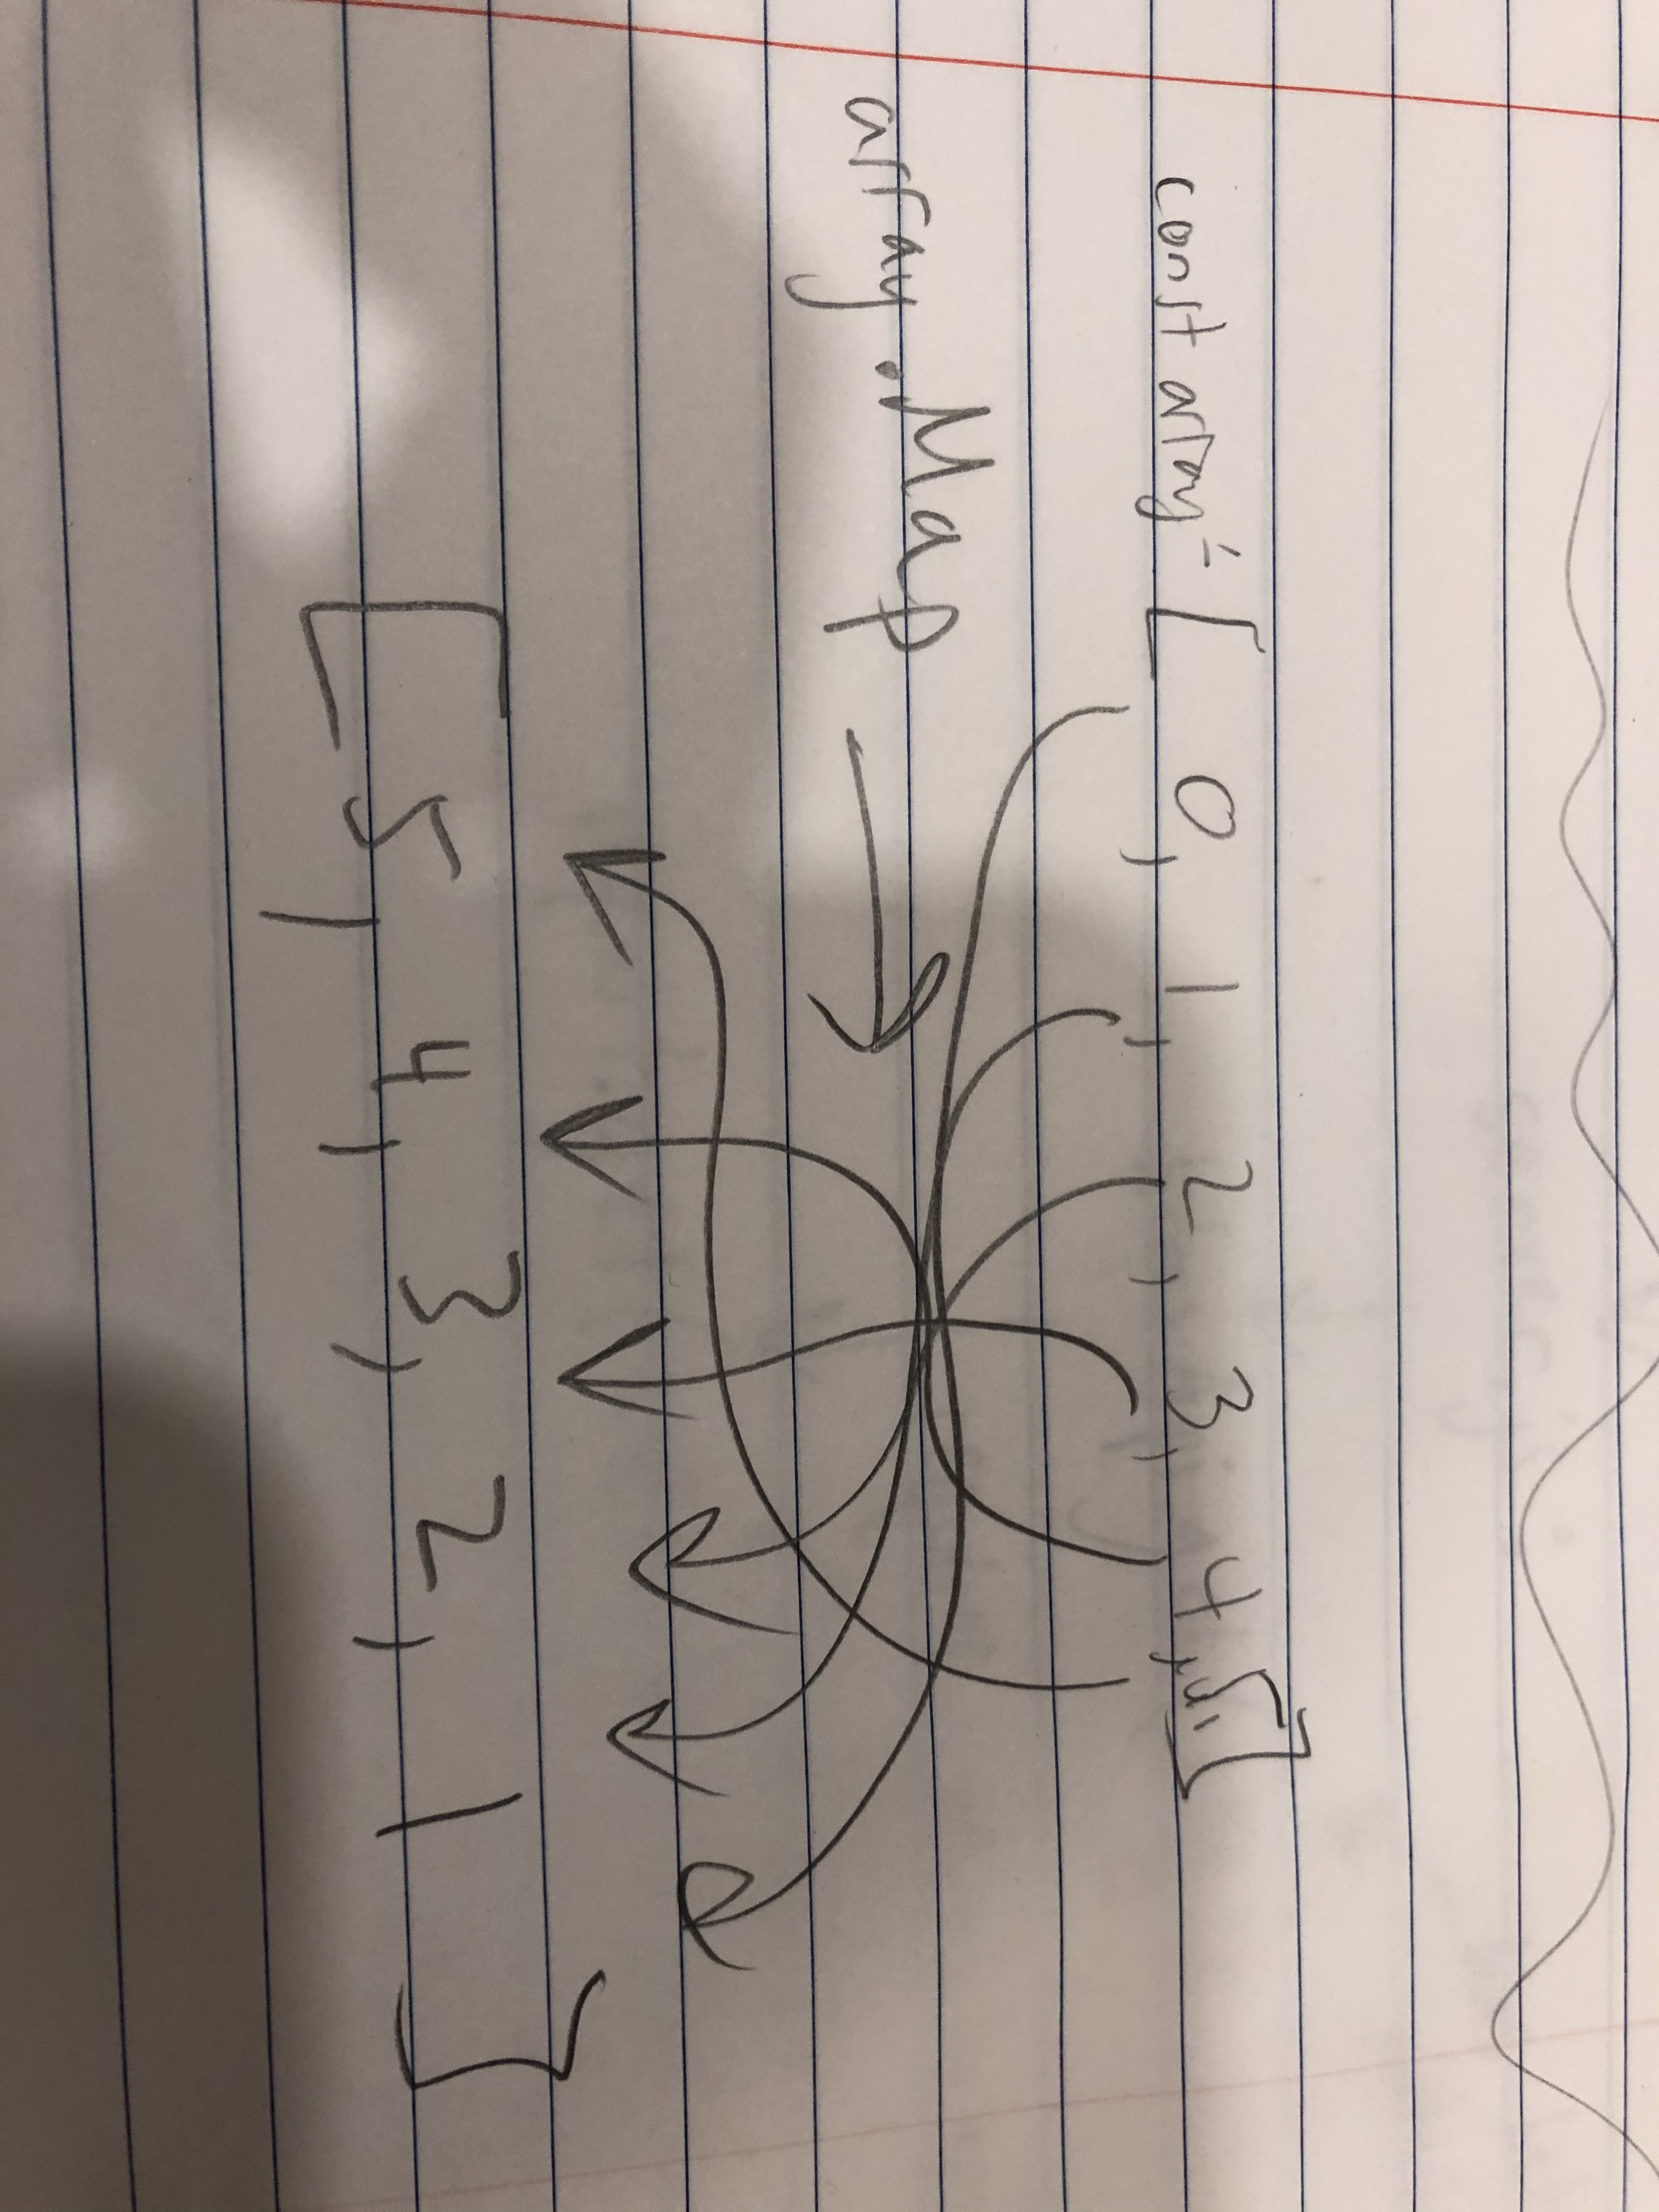 const array = [ 0, 1, 2, 3, 4, 5]
array.Map
[ 5, 4, 3, 2, 1 ]